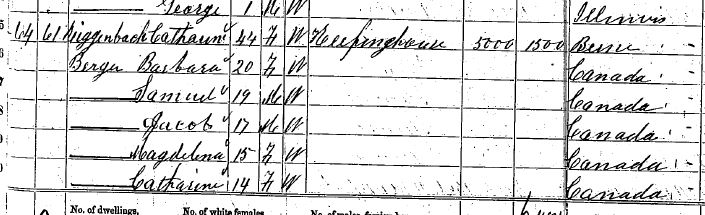 George 1 M W Illinois
64 61 Niggenbach Catharine 44 F W Keepinghouse 5000 1500 Berne
Berger Barbara 20 F W Canada
Samuel 19 M W Canada
Jacob 17 M W Canada
Magdelena 15 F W Canada
Catharine 14 F W Canada
No. of dwellings, No. of white females